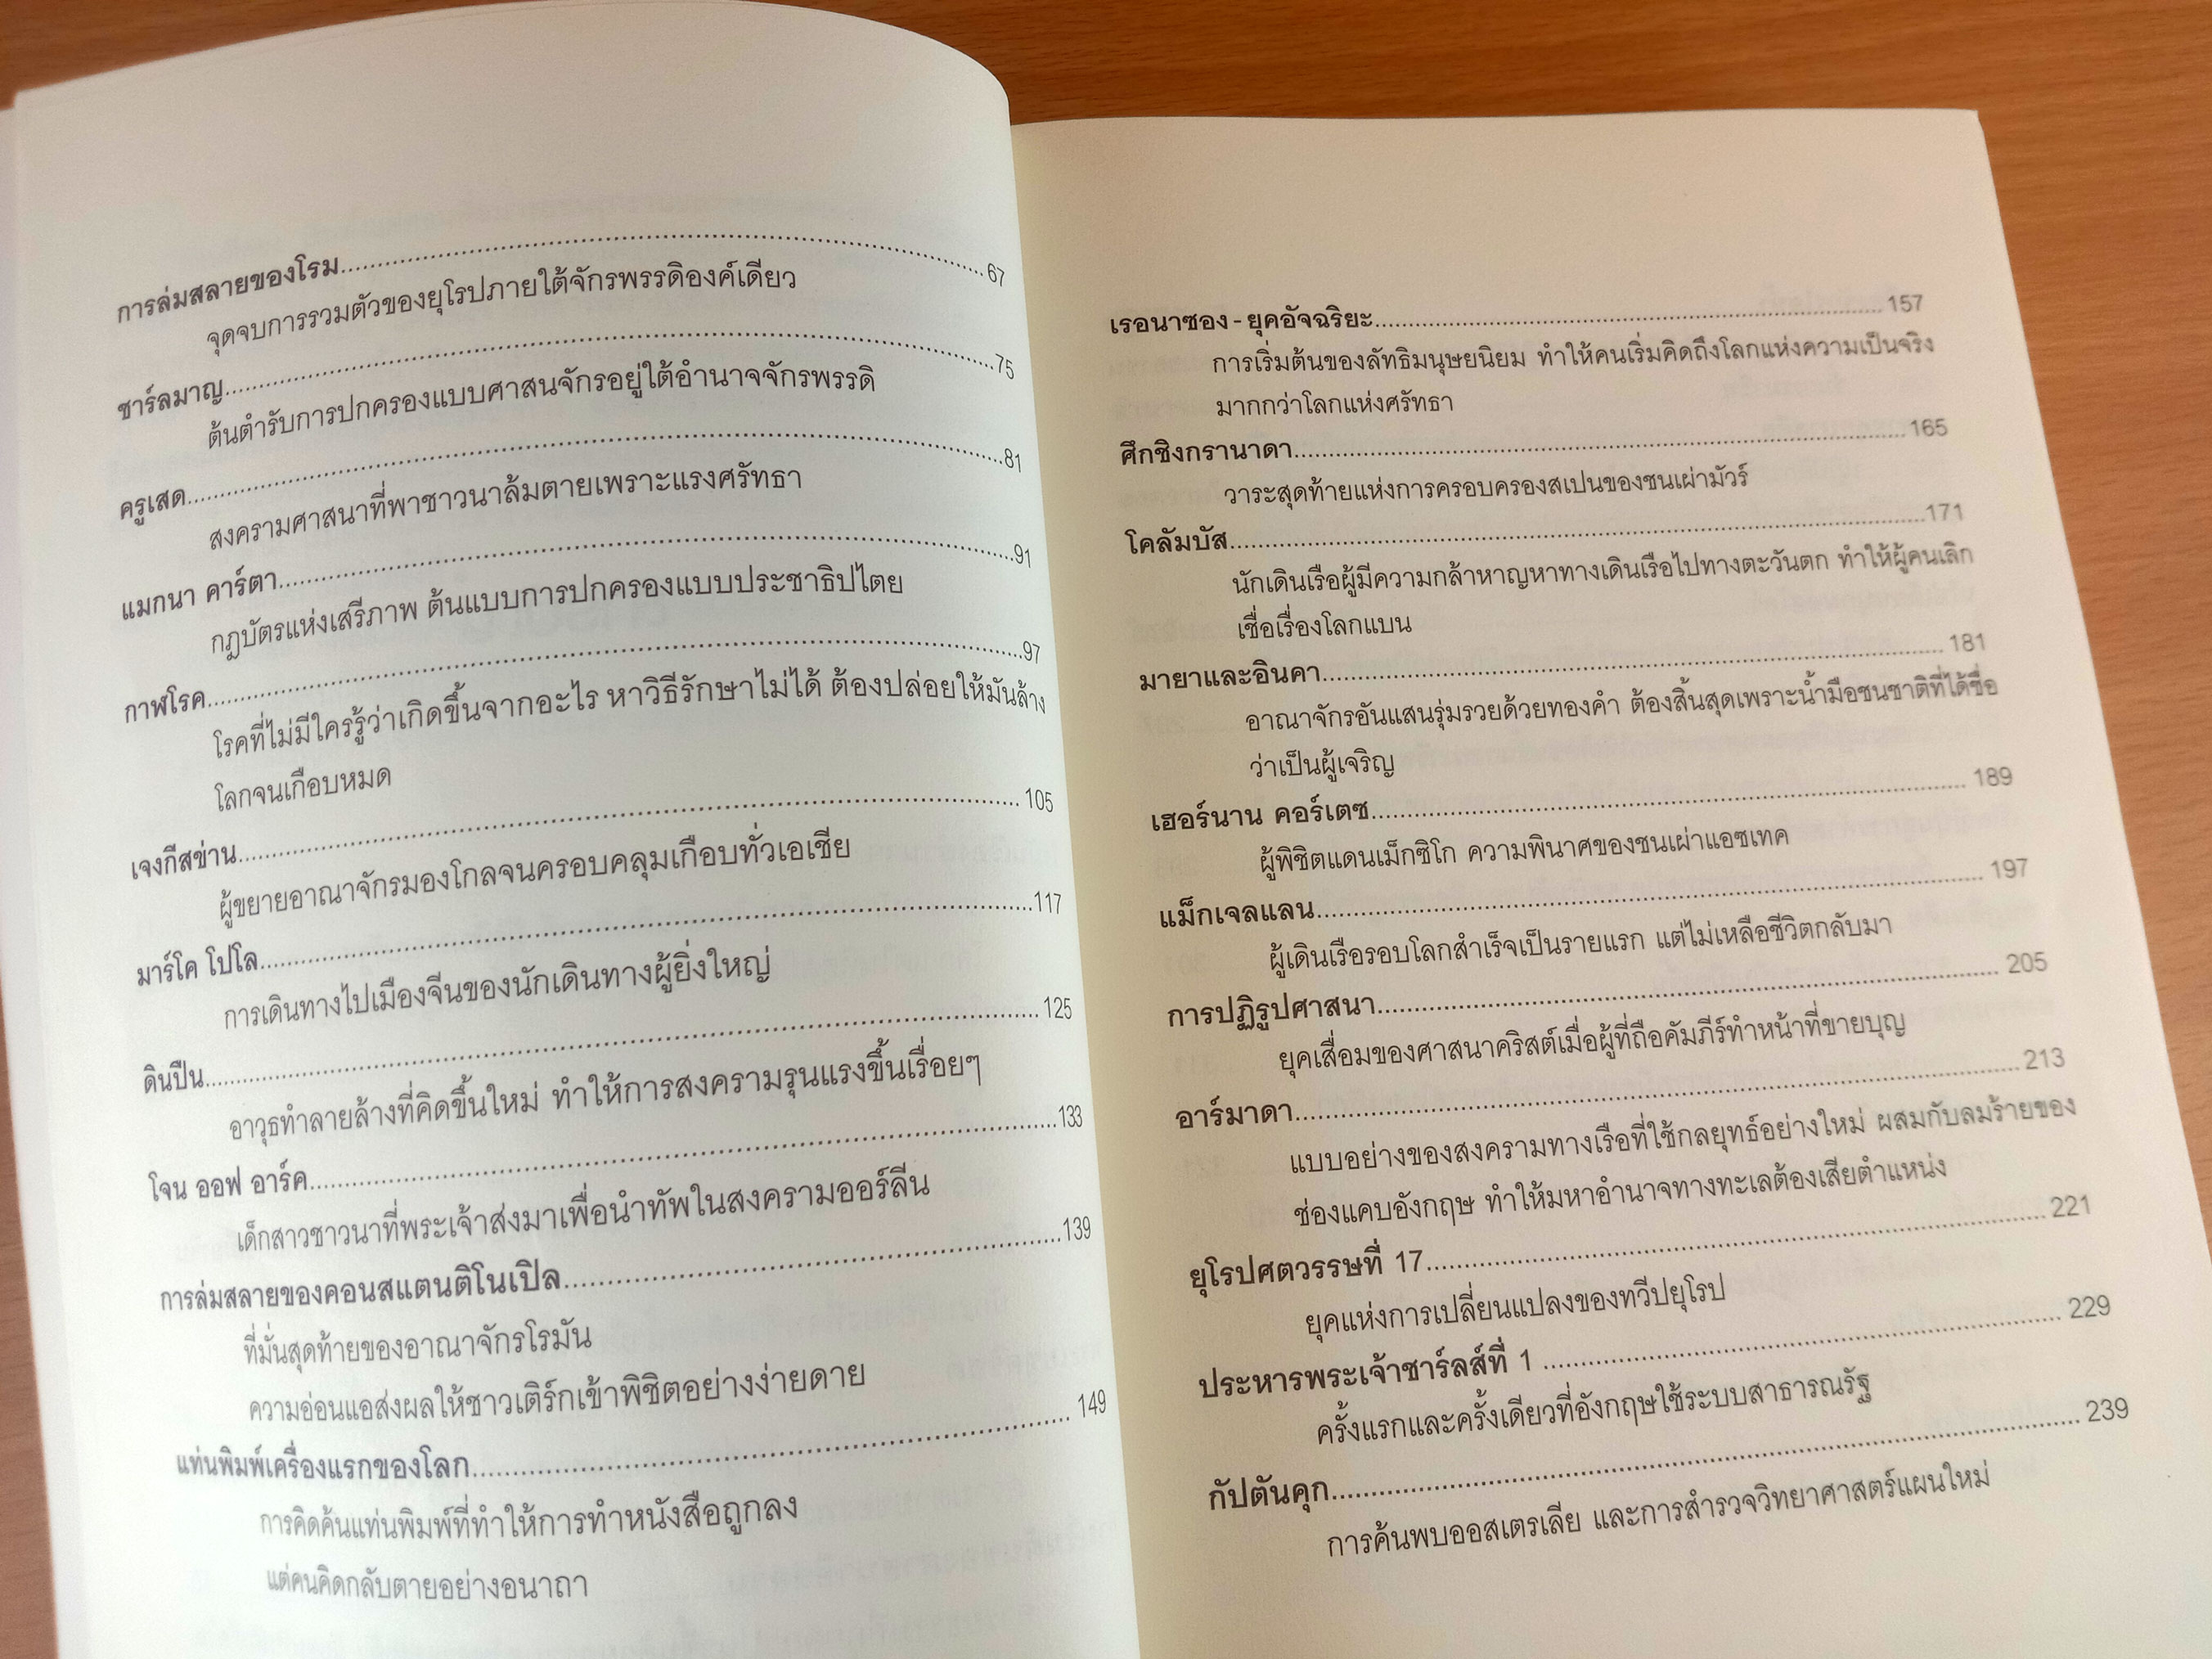 การล่มสลายของโรม........................67
จุดจบการรวมตัวของยุโรปภายใต้จักรพรรดิองค์เดียว
ชาร์ลมาญ........................75
ต้นตำรับการปกครองแบบศาสนจักรอยู่ใต้อำนาจจักรพรรดิ
ครูเสด........................81
สงครามศาสนาที่พาชาวนาล้มตายเพราะแรงศรัทธา
แมกนา คาร์ตา........................91
กฎบัตรแห่งเสรีภาพ ต้นแบบการปกครองแบบประชาธิปไตย
กาฬโรค........................97
โรคที่ไม่มีใครรู้ว่าเกิดขึ้นจากอะไร หาวิธีรักษาไม่ได้ ต้องปล่อยให้มันล้าง
โลกจนเกือบหมด
เจงกีสข่าน........................105
ผู้ขยายอาณาจักรมองโกลจนครอบคลุมเกือบทั่วเอเชีย
มาร์โค โปโล........................117
การเดินทางไปเมืองจีนของนักเดินทางผู้ยิ่งใหญ่
ดินปืน........................125
อาวุธทำลายล้างที่คิดขึ้นใหม่ ทำให้การสงครามรุนแรงขึ้นเรื่อยๆ
โจน ออฟ อาร์ค........................133
เด็กสาวชาวนาที่พระเจ้าส่งมาเพื่อนำทัพในสงครามออร์ลีน
การล่มสลายของคอนสแตนติโนเปิล........................139
ที่มั่นสุดท้ายของอาณาจักรโรมัน
ความอ่อนแอส่งผลให้ชาวเติร์กเข้าพิชิตอย่างง่ายดาย
แท่นพิมพ์เครื่องแรกของโลก........................149
การคิดค้นแท่นพิมพ์ที่ทำให้การทำหนังสือถูกลง
แต่คนคิดกลับตายอย่างอนาถา
เรอนาซอง - ยุคอัจฉริยะ........................157
การเริ่มต้นของลัทธิมนุษยนิยม ทำให้คนเริ่มคิดถึงโลกแห่งความเป็นจริง
มากกว่าโลกแห่งศรัทธา
ศึกชิงกรานาดา........................165
วาระสุดท้ายแห่งการครอบครองสเปนของชนเผ่ามัวร์
โคลัมบัส........................171
นักเดินเรือผู้มีความกล้าหาญหาทางเดินเรือไปทางตะวันตก ทำให้ผู้คนเลิก
เชื่อเรื่องโลกแบน
มายาและอินคา........................181
อาณาจักรอันแสนรุ่มรวยด้วยทองคำ ต้องสิ้นสุดเพราะน้ำมือชนชาติที่ได้ชื่อ
ว่าเป็นผู้เจริญ
เฮอร์นาน คอร์เตซ........................189
ผู้พิชิตแดนเม็กซิโก ความพินาศของชนเผ่าแอซเทค
แม็กเจลแลน........................197
ผู้เดินเรือรอบโลกสำเร็จเป็นรายแรก แต่ไม่เหลือชีวิตกลับมา
การปฏิรูปศาสนา........................205
ยุคเสื่อมของศาสนาคริสต์เมื่อผู้ที่ถือคัมภีร์ทำหน้าที่ขายบุญ
อาร์มาดา........................213
แบบอย่างของสงครามทางเรือที่ใช้กลยุทธ์อย่างใหม่ ผสมกับลมร้ายของ
ช่องแคบอังกฤษ ทำให้มหาอำนาจทางทะเลต้องเสียตำแหน่ง
ยุโรปศตวรรษที่ 17........................221
ยุคแห่งการเปลี่ยนแปลงของทวีปยุโรป
ประหารพระเจ้าชาร์ลส์ที่ 1 ........................229
ครั้งแรกและครั้งเดียวที่อังกฤษใช้ระบบสาธารณรัฐ
กัปตันคุก........................239
การค้นพบออสเตรเลีย และการสำรวจวิทยาศาสตร์แผนใหม่